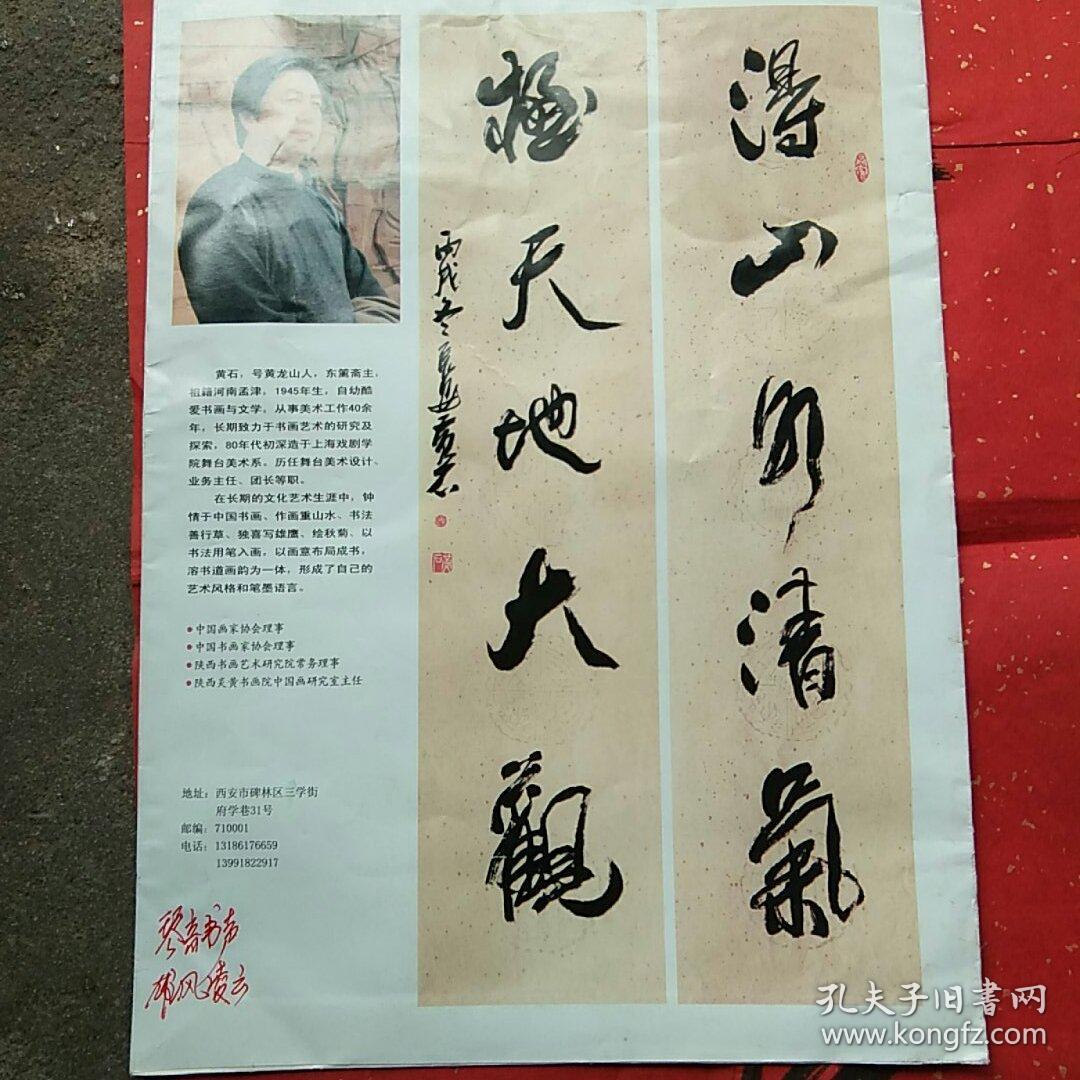 得山水清氣
極天地大觀
丙戌冬月黄石
黄石，号黄龙山人，东篱斋主，
祖籍河南孟津，1945年生，自幼酷
爱书画与文学，从事美术工作40余
年，长期致力于书画艺术的研究及
探索，80年代初深造于上海戏剧学
院舞台美术系。历任舞台美术设计、
业务主任、团长等职。
在长期的文化艺术生涯中，钟
情于中国书画、作画重山水、书法
善行草、独喜写雄鹰、绘秋菊、以
书法用笔入画，以画意布局成书，
溶书道画韵为一体，形成了自己的
艺术风格和笔墨语言。
●中国画家协会理事
●中国书画家协会理事
●陕西书画艺术研究院常务理事
●陕西炎黄书画院中国画研究室主任
地址：西安市碑林区三学街
府学巷31号
邮编：710001
电话：13186176659
13991822917
琴音书声
雄风凌云
孔夫子旧書网
www.kongfz.com